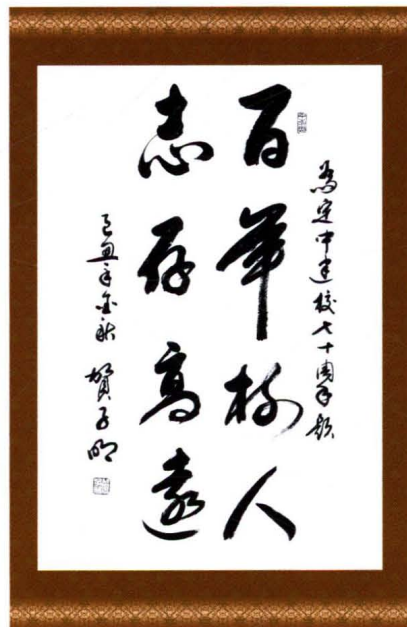 为定中建校七十周年题
百年树人
志存高远
己丑年金秋 贺子明